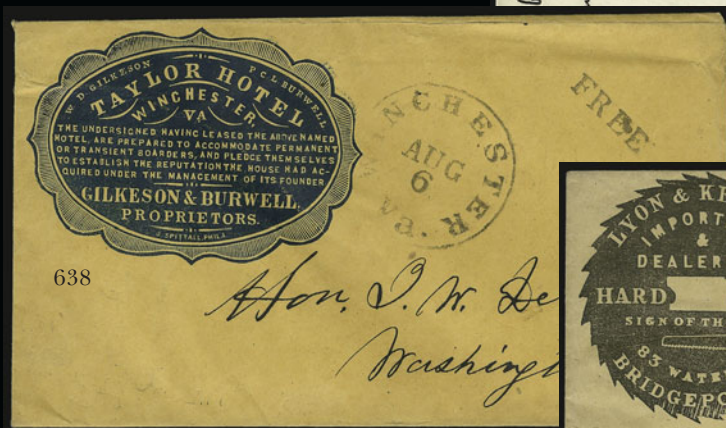 W. D. GILKESON P. C. L. BURWELL
TAYLOR HOTEL
WINCHESTER
VA
THE UNDERSIGNED HAVING LEASED THE ABOVE NAMED
HOTEL, ARE PREPARED TO ACCOMMODATE PERMANENT
OR TRANSIENT BOARDERS, AND PLEDGE THEMSELVES
TO ESTABLISH THE REPUTATION THE HOUSE HAD AC-
QUIRED UNDER THE MANAGEMENT OF ITS FOUNDER
GILKESON & BURWELL,
PROPRIETORS.
J. SPITTALL PHILA
INCHESTER
AUG
6
FREE
638
Hon. I. W. De
Washingt
LYON & K
IMPORT
&
DEALER
HARD
SIGN OF TH
83 WATE
BRIDGEPO